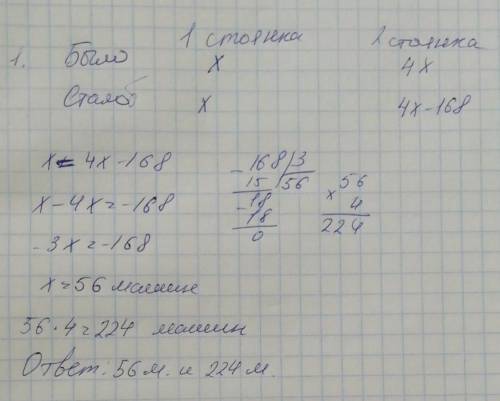 1 стоянка 2 стоянка
1. Было x 4x
Стало x 4x-168
x = 4x - 168
x - 4x = -168
- 3x = -168
x = 56 машин
168 | 3
15 | 56
- 18
18
0
56
x 4
224
56 · 4 = 224 машин
Ответ: 56 м. и 224 м.